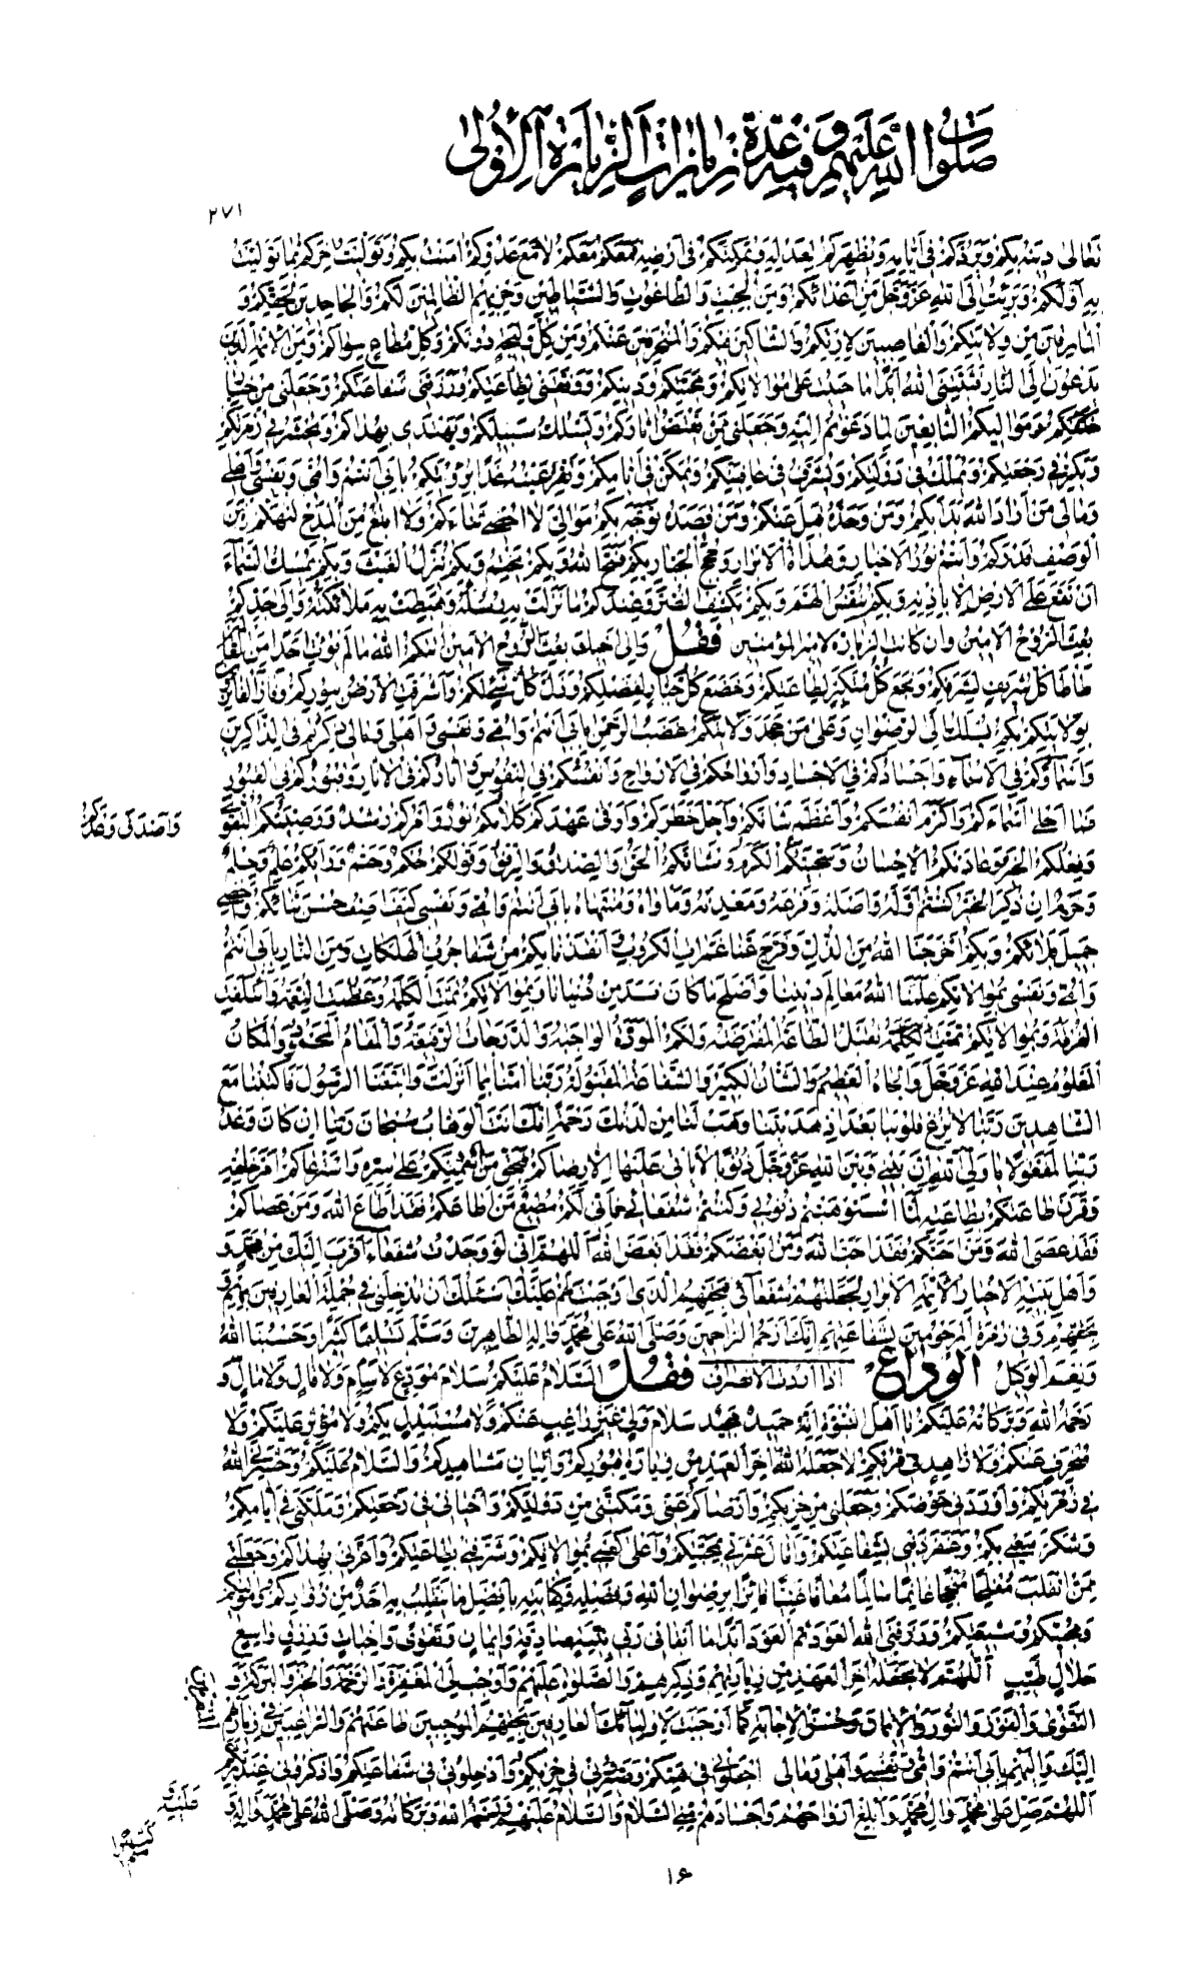 صَلَوَاتُ اللهِ عَلَيْهِمْ وَفِيهِ عِدَّةُ زِيَارَاتٍ اَلزِّيَارَةُ اَلْأُولىٰ
٢٧١
تَعَالىٰ دينَهُ بِكُمْ وَيَرُدَّكُمْ فى اَيّامِهِ وَيُظْهِرَكُمْ لِعَدْلِهِ وَيُمَكِّنَكُمْ فى اَرْضِهِ فَمَعَكُمْ مَعَكُمْ لا مَعَ عَدُوِّكُمْ امَنْتُ بِكُمْ وَتَوَلَّيْتُ اخِرَكُمْ بِما تَوَلَّيْتُ
بِهِ اَوَّلَكُمْ وَبَرِئْتُ اِلَى اللهِ عَزَّ وَجَلَّ مِنْ اَعْدائِكُمْ وَمِنَ الْجِبْتِ وَالطّاغُوتِ وَالشَّياطينِ وَحِزْبِهِمُ الظّالِمينَ لَكُمْ وَالْجاحِدينَ لِحَقِّكُمْ وَ
الْمارِقينَ مِنْ وِلايَتِكُمْ وَالْغاصِبينَ لِاِرْثِكُمْ وَالشّاكّينَ فيكُمْ وَالْمُنْحَرِفينَ عَنْكُمْ وَمِنْ كُلِّ وَليجَةٍ دُونَكُمْ وَكُلِّ مُطاعٍ سِواكُمْ وَمِنَ الْاَئِمَّةِ الَّذينَ
يَدْعُونَ اِلَى النّارِ فَثَبَّتَنِىَ اللهُ اَبَدًا ما حَييتُ عَلىٰ مُوالاتِكُمْ وَمَحَبَّتِكُمْ وَدينِكُمْ وَوَفَّقَنى لِطاعَتِكُمْ وَرَزَقَنى شَفاعَتَكُمْ وَجَعَلَنى مِنْ خِيارِ
مَواليكُمُ التّابِعينَ لِما دَعَوْتُمْ اِلَيْهِ وَجَعَلَنى مِمَّنْ يَقْتَصُّ اثارَكُمْ وَيَسْلُكُ سَبيلَكُمْ وَيَهْتَدى بِهُداكُمْ وَيُحْشَرُ فى زُمْرَتِكُمْ
وَيَكُرُّ فى رَجْعَتِكُمْ وَيُمَلَّكُ فى دَوْلَتِكُمْ وَيُشَرَّفُ فى عافِيَتِكُمْ وَيُمَكَّنُ فى اَيّامِكُمْ وَتَقِرُّ عَيْنُهُ غَدًا بِرُؤْيَتِكُمْ بِاَبى اَنْتُمْ وَاُمّى وَنَفْسى وَاَهْلى
وَمالى مَنْ اَرادَ اللهَ بَدَأَ بِكُمْ وَمَنْ وَحَّدَهُ قَبِلَ عَنْكُمْ وَمَنْ قَصَدَهُ تَوَجَّهَ بِكُمْ مَوالِىَّ لا اُحْصى ثَناءَكُمْ وَلا اَبْلُغُ مِنَ الْمَدْحِ كُنْهَكُمْ وَمِنَ
الْوَصْفِ قَدْرَكُمْ وَاَنْتُمْ نُورُ الْاَخْيارِ وَهُداةُ الْاَبْرارِ وَحُجَجُ الْجَبّارِ بِكُمْ فَتَحَ اللهُ وَبِكُمْ يَخْتِمُ وَبِكُمْ يُنَزِّلُ الْغَيْثَ وَبِكُمْ يُمْسِكُ السَّماءَ
اَنْ تَقَعَ عَلَى الْاَرْضِ اِلّا بِاِذْنِهِ وَبِكُمْ يُنَفِّسُ الْهَمَّ وَبِكُمْ يَكْشِفُ الضُّرَّ وَعِنْدَكُمْ ما نَزَلَتْ بِهِ رُسُلُهُ وَهَبَطَتْ بِهِ مَلائِكَتُهُ وَاِلىٰ جَدِّكُمْ
بُعِثَ الرُّوحُ الْاَمينُ وان كانت الزيارة لامير المؤمنين فَقُلْ وَاِلىٰ اَخيكَ بُعِثَ الرُّوحُ الْاَمينُ اتاكُمُ اللهُ ما لَمْ يُؤْتِ اَحَدًا مِنَ الْعالَمينَ
طَأْطَأَ كُلُّ شَريفٍ لِشَرَفِكُمْ وَبَخَعَ كُلُّ مُتَكَبِّرٍ لِطاعَتِكُمْ وَخَضَعَ كُلُّ جَبّارٍ لِفَضْلِكُمْ وَذَلَّ كُلُّ شَىْءٍ لَكُمْ وَاَشْرَقَتِ الْاَرْضُ بِنُورِكُمْ وَفازَ الْفائِزُونَ
بِوِلايَتِكُمْ بِكُمْ يُسْلَكُ اِلَى الرِّضْوانِ وَعَلىٰ مَنْ جَحَدَ وِلايَتَكُمْ غَضَبُ الرَّحْمٰنِ بِاَبى اَنْتُمْ وَاُمّى وَنَفْسى وَاَهْلى وَمالى ذِكْرُكُمْ فِى الذّاكِرينَ
وَاَسْماؤُكُمْ فِى الْاَسْماءِ وَاَجْسادُكُمْ فِى الْاَجْسادِ وَاَرْواحُكُمْ فِى الْاَرْواحِ وَاَنْفُسُكُمْ فِى النُّفُوسِ وَاثارُكُمْ فِى الْاثارِ وَقُبُورُكُمْ فِى الْقُبُورِ
فَما اَحْلىٰ اَسْماءَكُمْ وَاَكْرَمَ اَنْفُسَكُمْ وَاَعْظَمَ شَأْنَكُمْ وَاَجَلَّ خَطَرَكُمْ وَاَوْفىٰ عَهْدَكُمْ كَلامُكُمْ نُورٌ وَاَمْرُكُمْ رُشْدٌ وَوَصِيَّتُكُمُ التَّقْوىٰ
وَاَصْدَقَ وَعْدَكُمْ
وَفِعْلُكُمُ الْخَيْرُ وَعادَتُكُمُ الْاِحْسانُ وَسَجِيَّتُكُمُ الْكَرَمُ وَشَأْنُكُمُ الْحَقُّ وَالصِّدْقُ وَالرِّفْقُ وَقَوْلُكُمْ حُكْمٌ وَحَتْمٌ وَرَأْيُكُمْ عِلْمٌ وَحِلْمٌ
وَحَزْمٌ اِنْ ذُكِرَ الْخَيْرُ كُنْتُمْ اَوَّلَهُ وَاَصْلَهُ وَفَرْعَهُ وَمَعْدِنَهُ وَمَأْواهُ وَمُنْتَهاهُ بِاَبى اَنْتُمْ وَاُمّى وَنَفْسى كَيْفَ اَصِفُ حُسْنَ ثَنائِكُمْ وَاُحْصى
جَميلَ بَلائِكُمْ وَبِكُمْ اَخْرَجَنَا اللهُ مِنَ الذُّلِّ وَفَرَّجَ عَنّا غَمَراتِ الْكُرُوبِ وَاَنْقَذَنا بِكُمْ مِنْ شَفا جُرُفِ الْهَلَكاتِ وَمِنَ النّارِ بِاَبى اَنْتُمْ
وَاُمّى وَنَفْسى بِمُوالاتِكُمْ عَلَّمَنَا اللهُ مَعالِمَ دينِنا وَاَصْلَحَ ما كانَ فَسَدَ مِنْ دُنْيانا وَبِمُوالاتِكُمْ تَمَّتِ الْكَلِمَةُ وَعَظُمَتِ النِّعْمَةُ وَائْتَلَفَتِ
الْفُرْقَةُ وَبِمُوالاتِكُمْ تُقْبَلُ الطّاعَةُ الْمُفْتَرَضَةُ وَلَكُمُ الْمَوَدَّةُ الْواجِبَةُ وَالدَّرَجاتُ الرَّفيعَةُ وَالْمَقامُ الْمَحْمُودُ وَالْمَكانُ
الْمَعْلُومُ عِنْدَ اللهِ عَزَّ وَجَلَّ وَالْجاهُ الْعَظيمُ وَالشَّأْنُ الْكَبيرُ وَالشَّفاعَةُ الْمَقْبُولَةُ رَبَّنا امَنّا بِما اَنْزَلْتَ وَاتَّبَعْنَا الرَّسُولَ فَاكْتُبْنا مَعَ
الشّاهِدينَ رَبَّنا لا تُزِغْ قُلُوبَنا بَعْدَ اِذْ هَدَيْتَنا وَهَبْ لَنا مِنْ لَدُنْكَ رَحْمَةً اِنَّكَ اَنْتَ الْوَهّابُ سُبْحانَ رَبِّنا اِنْ كانَ وَعْدُ
رَبِّنا لَمَفْعُولًا يا وَلِىَّ اللهِ اِنَّ بَيْنى وَبَيْنَ اللهِ عَزَّ وَجَلَّ ذُنُوبًا لا يَأْتى عَلَيْها اِلّا رِضاكُمْ فَبِحَقِّ مَنِ ائْتَمَنَكُمْ عَلىٰ سِرِّهِ وَاسْتَرْعاكُمْ اَمْرَ خَلْقِهِ
وَقَرَنَ طاعَتَكُمْ بِطاعَتِهِ لَمَّا اسْتَوْهَبْتُمْ ذُنُوبى وَكُنْتُمْ شُفَعائى فَاِنّى لَكُمْ مُطيعٌ مَنْ اَطاعَكُمْ فَقَدْ اَطاعَ اللهَ وَمَنْ عَصاكُمْ
فَقَدْ عَصَى اللهَ وَمَنْ اَحَبَّكُمْ فَقَدْ اَحَبَّ اللهَ وَمَنْ اَبْغَضَكُمْ فَقَدْ اَبْغَضَ اللهَ اَللّٰهُمَّ اِنّى لَوْ وَجَدْتُ شُفَعاءَ اَقْرَبَ اِلَيْكَ مِنْ مُحَمَّدٍ وَ
وَاَهْلِ بَيْتِهِ الْاَخْيارِ الْاَئِمَّةِ الْاَبْرارِ لَجَعَلْتُهُمْ شُفَعائى فَبِحَقِّهِمُ الَّذى اَوْجَبْتَ لَهُمْ عَلَيْكَ اَسْئَلُكَ اَنْ تُدْخِلَنى فى جُمْلَةِ الْعارِفينَ بِهِمْ وَ
بِحَقِّهِمْ وَفى زُمْرَةِ الْمَرْحُومينَ بِشَفاعَتِهِمْ اِنَّكَ اَرْحَمُ الرّاحِمينَ وَصَلَّى اللهُ عَلىٰ مُحَمَّدٍ وَالِهِ الطّاهِرينَ وَسَلَّمَ تَسْليمًا كَثيرًا وَحَسْبُنَا اللهُ
وَنِعْمَ الْوَكيلُ الوداع اذا اردت الانصراف فَقُلْ اَلسَّلامُ عَلَيْكُمْ سَلامَ مُوَدِّعٍ لا سَئِمٍ وَلا قالٍ وَلا مالٍّ وَ
رَحْمَةُ اللهِ وَبَرَكاتُهُ عَلَيْكُمْ يا اَهْلَ النُّبُوَّةِ اِنَّهُ حَميدٌ مَجيدٌ سَلامَ وَلِىٍّ غَيْرِ راغِبٍ عَنْكُمْ وَلا مُسْتَبْدِلٍ بِكُمْ وَلا مُؤْثِرٍ عَلَيْكُمْ وَلا
مُنْحَرِفٍ عَنْكُمْ وَلا زاهِدٍ فى قُرْبِكُمْ لا جَعَلَهُ اللهُ اخِرَ الْعَهْدِ مِنْ زِيارَةِ قُبُورِكُمْ وَاِتْيانِ مَشاهِدِكُمْ وَالسَّلامُ عَلَيْكُمْ وَحَشَرَنِىَ اللهُ
فى زُمْرَتِكُمْ وَاَوْرَدَنى حَوْضَكُمْ وَجَعَلَنى مِنْ حِزْبِكُمْ وَاَرْضاكُمْ عَنّى وَمَكَّنَنى مِنْ دَوْلَتِكُمْ وَاَحْيانى فى رَجْعَتِكُمْ وَمَلَّكَنى فى اَيّامِكُمْ
وَشَكَرَ سَعْيى بِكُمْ وَغَفَرَ ذَنْبى بِشَفاعَتِكُمْ وَاَقالَ عَثْرَتى بِمَحَبَّتِكُمْ وَاَعْلىٰ كَعْبى بِمُوالاتِكُمْ وَشَرَّفَنى بِطاعَتِكُمْ وَاَعَزَّنى بِهُداكُمْ وَجَعَلَنى
مِمَّنِ انْقَلَبَ مُفْلِحًا مُنْجِحًا غانِمًا سالِمًا مُعافًا غَنِيًّا فائِزًا بِرِضْوانِ اللهِ وَفَضْلِهِ وَكِفايَتِهِ بِاَفْضَلِ ما يَنْقَلِبُ بِهِ اَحَدٌ مِنْ زُوّارِكُمْ وَمَواليكُمْ
وَمُحِبّيكُمْ وَشيعَتِكُمْ وَرَزَقَنِىَ اللهُ الْعَوْدَ ثُمَّ الْعَوْدَ اَبَدًا ما اَبْقانى رَبّى بِنِيَّةٍ صادِقَةٍ وَايمانٍ وَتَقْوىٰ وَاِخْباتٍ وَرِزْقٍ واسِعٍ
حَلالٍ طَيِّبٍ اَللّٰهُمَّ لا تَجْعَلْهُ اخِرَ الْعَهْدِ مِنْ زِيارَتِهِمْ وَذِكْرِهِمْ وَالصَّلوٰةِ عَلَيْهِمْ وَاَوْجِبْ لِىَ الْمَغْفِرَةَ وَالرَّحْمَةَ وَالْخَيْرَ وَالْبَرَكَةَ وَ
التَّقْوىٰ وَالْفَوْزَ وَالنُّورَ وَالْايمانَ وَحُسْنَ الْاِجابَةِ كَما اَوْجَبْتَ لِاَوْلِيائِكَ الْعارِفينَ بِحَقِّهِمُ الْمُوجِبينَ طاعَتَهُمْ وَالرّاغِبينَ فى زِيارَتِهِمْ
اِلَيْكَ وَاِلَيْهِمْ بِاَبى اَنْتُمْ وَاُمّى وَنَفْسى وَاَهْلى وَمالى اجْعَلُونى فى هَمِّكُمْ وَصَيِّرُونى فى حِزْبِكُمْ وَاَدْخِلُونى فى شَفاعَتِكُمْ وَاذْكُرُونى عِنْدَ رَبِّكُمْ
اَللّٰهُمَّ صَلِّ عَلىٰ مُحَمَّدٍ وَالِ مُحَمَّدٍ وَاَبْلِغْ اَرْواحَهُمْ وَاَجْسادَهُمْ مِنِّى السَّلامَ وَالسَّلامُ عَلَيْهِمْ وَرَحْمَةُ اللهِ وَبَرَكاتُهُ وَصَلَّى اللهُ عَلىٰ مُحَمَّدٍ وَالِهِ وَ
١۶